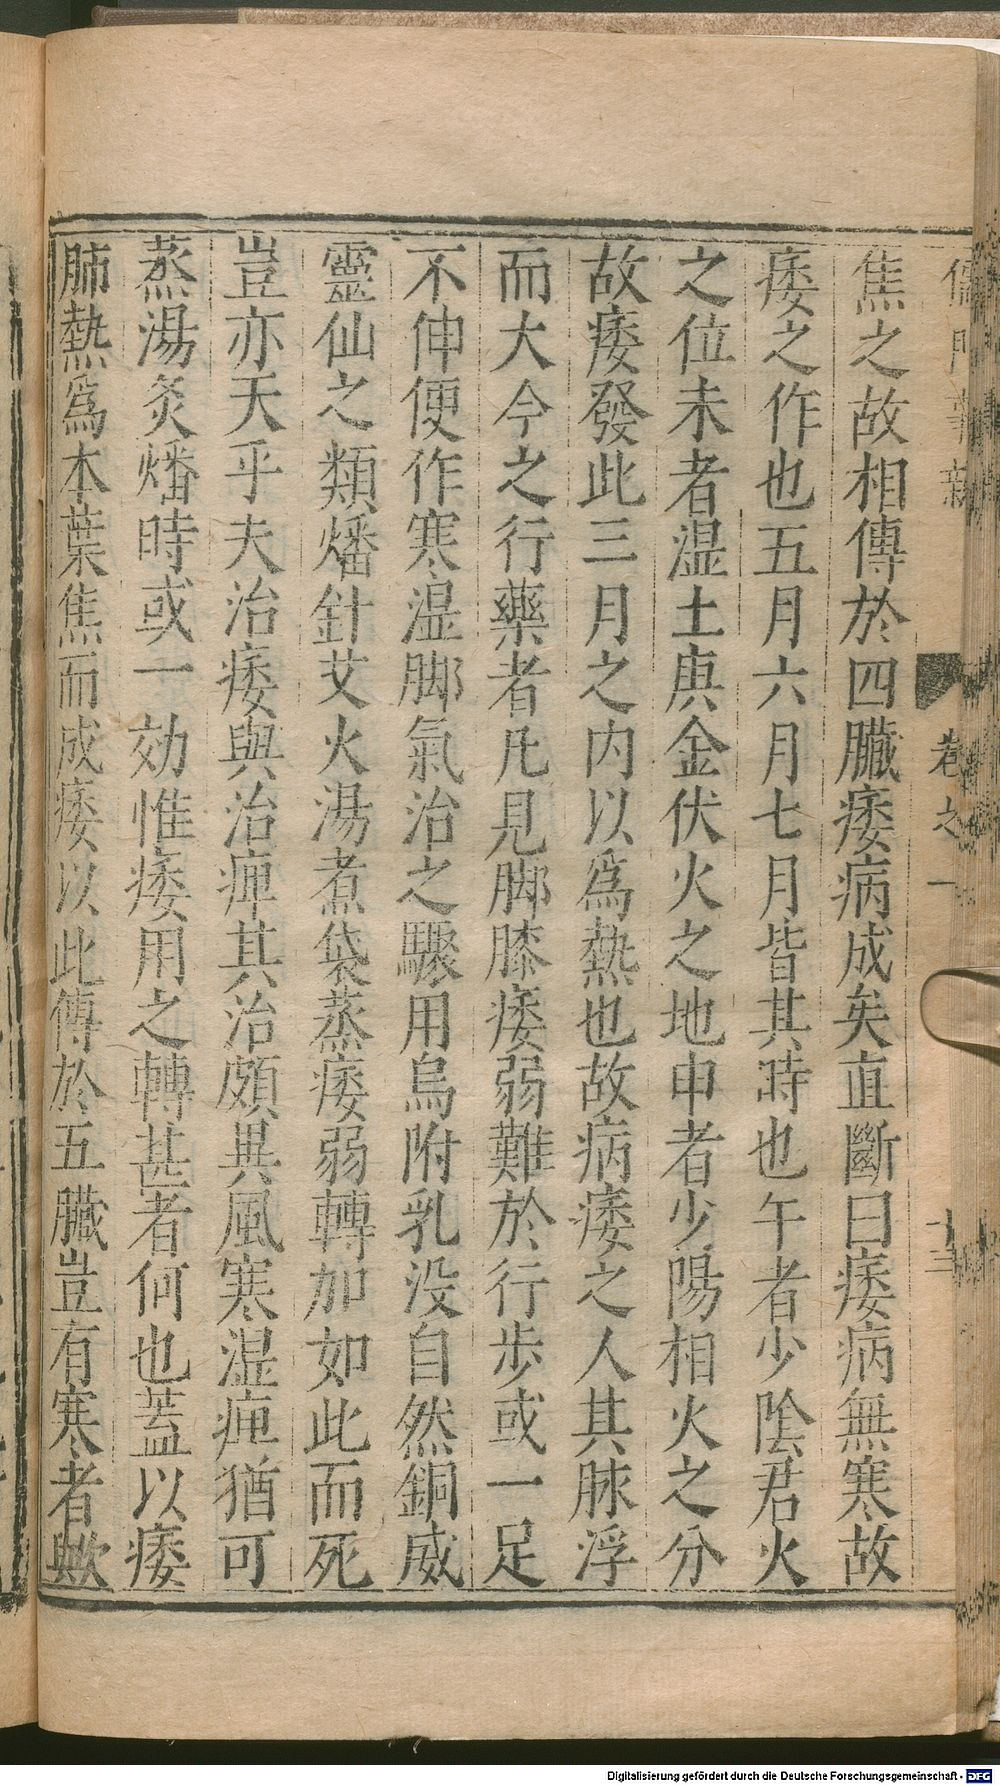 儒門事親
卷之一
十三
焦之故相傳於四臟痿病成矣直斷曰痿病無寒故
痿之作也五月六月七月皆其時也午者少陰君火
之位未者湿土庚金伏火之地申者少陽相火之分
故痿發此三月之内以爲熱也故病痿之人其脉浮
而大今之行藥者凡見脚膝痿弱難於行步或一足
不伸便作寒湿脚氣治之驟用烏附乳没自然銅威
靈仙之類燔針艾火湯煮袋蒸痿弱轉加如此而死
豈亦天乎夫治痿與治痺其治頗異風寒湿痺猶可
蒸湯灸燔時或一効惟痿用之轉甚者何也蓋以痿
肺熱爲本葉焦而成痿以此傳於五臟豈有寒者歟
Digitalisierung gefördert durch die Deutsche Forschungsgemeinschaft - DFG